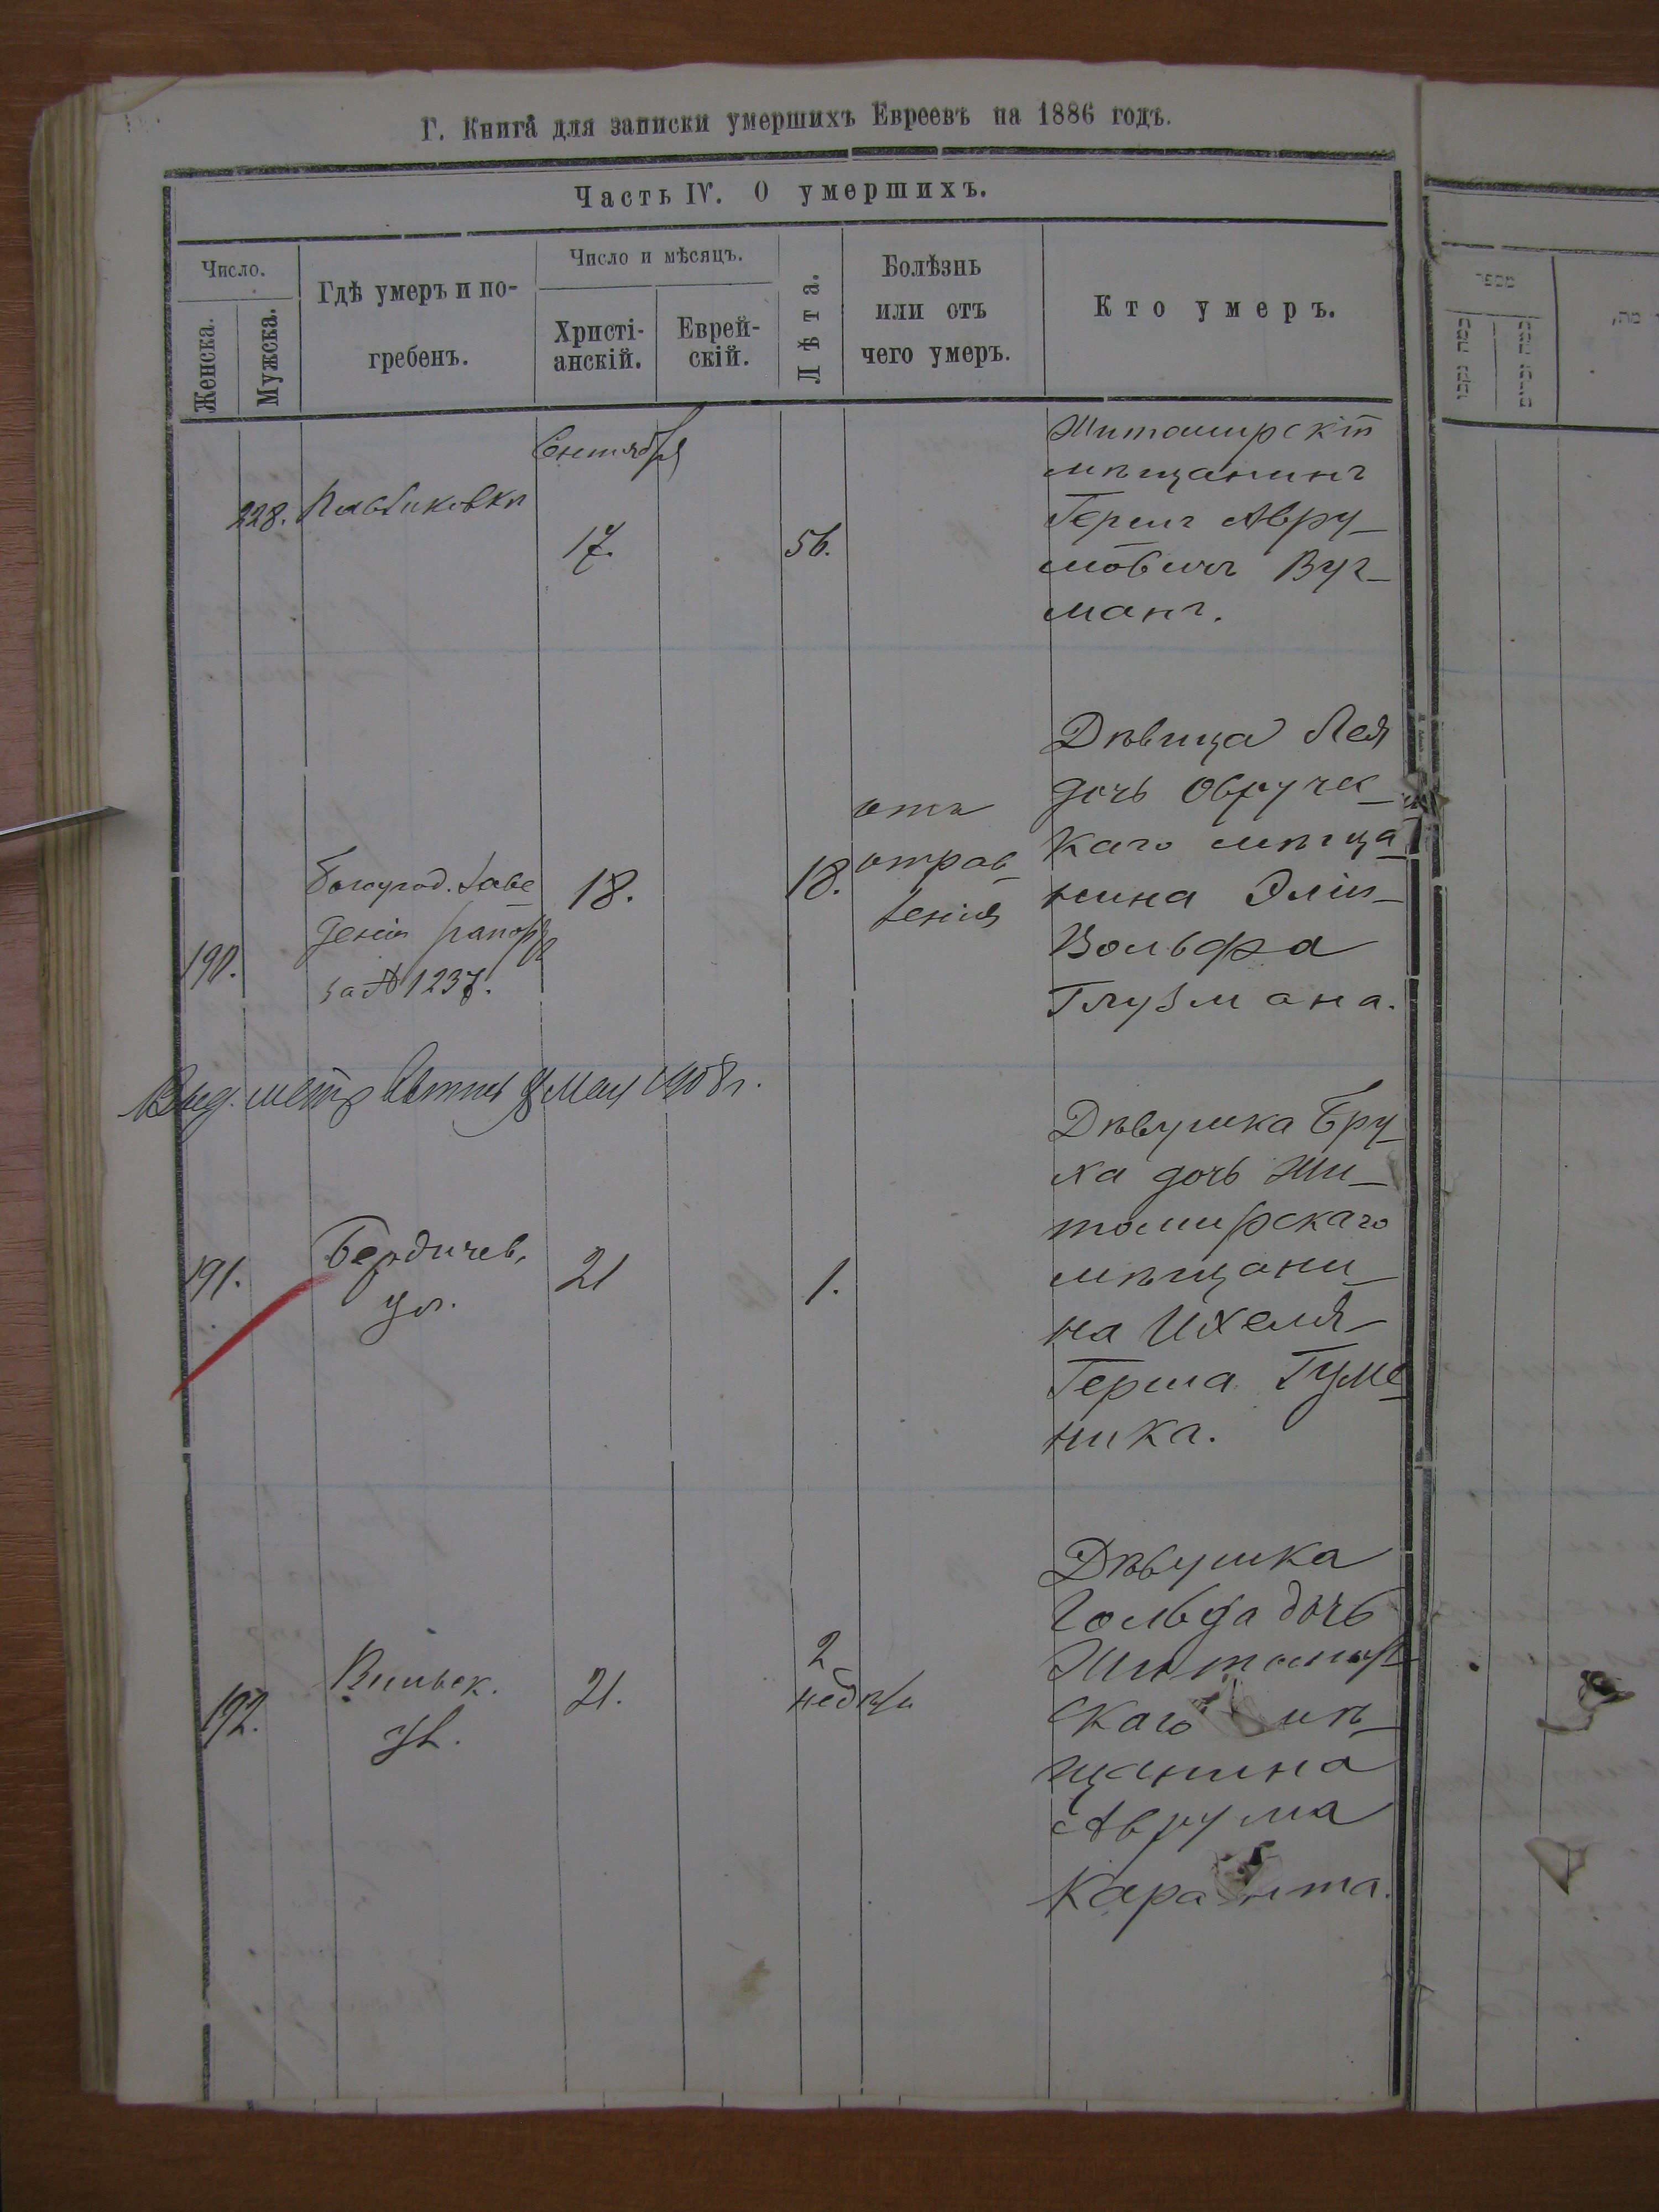 Г. Книга для записки умершихъ Евреевъ на 1886 годъ.
Часть IV. О умершихъ.
Число.
Женска.
Мужска.
Гдѣ умеръ и по-
гребенъ.
Число и мѣсяцъ.
Христі-
анскій.
Еврей-
скій.
Лѣта.
Болѣзнь
или отъ
чего умеръ.
Кто умеръ.
מספר
Сентября
228. Павликовка
17.
56.
Житомирскій
мѣщанинъ
Гершъ Авру-
мовичъ Вуг-
манъ.
190.
Богоугод. Заве
денія рапортъ
за № 1237.
18.
18.
отъ
отрав-
ленія
Дѣвица Лея
дочь Овруч-
каго мѣща
нина Эліи-
Вольфа
Глузмана.
Выд. метр 9 Мая 1908 г.
191.
Бердичев.
ул.
21
1.
Дѣвушка Бру-
ха дочь Жи-
томирскаго
мѣщани-
на Ихеля-
Герша Гуме
ника.
192.
Вильск.
ул.
21.
2
недѣли
Дѣвушка
Гольда дочь
Житомир-
скаго мѣ-
щанина
Аврума